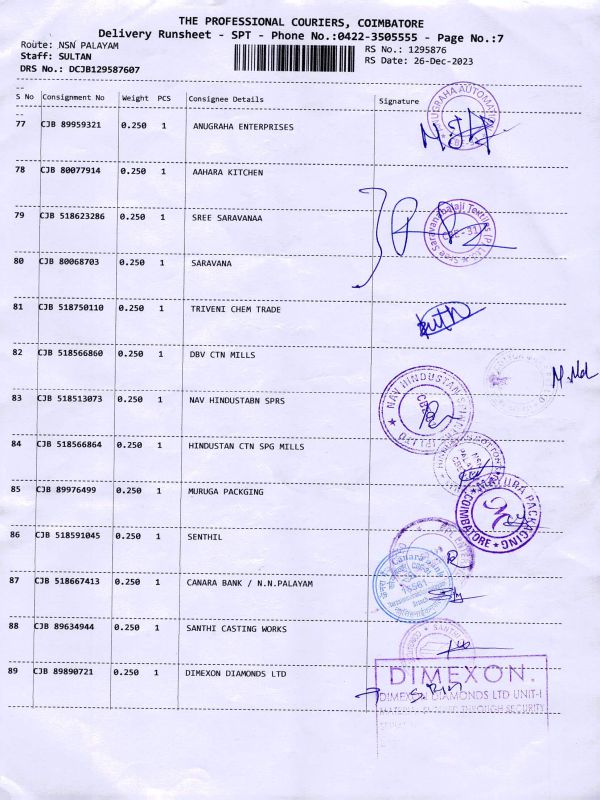 THE PROFESSIONAL COURIERS, COIMBATORE
Delivery Runsheet - SPT - Phone No.:0422-3505555 - Page No.:7
Route: NSN PALAYAM
RS No.: 1295876
Staff: SULTAN
RS Date: 26-Dec-2023
DRS No.: DCJB129587607
S No Consignment No Weight PCS Consignee Details Signature
77 CJB 89959321 0.250 1 ANUGRAHA ENTERPRISES
ANUGRAHA AUTOMATION
78 CJB 80077914 0.250 1 AAHARA KITCHEN
79 CJB 518623286 0.250 1 SREE SARAVANAA
Sree Saravanabalaji Textiles (P)
80 CJB 80068703 0.250 1 SARAVANA
81 CJB 518750110 0.250 1 TRIVENI CHEM TRADE
82 CJB 518566860 0.250 1 DBV CTN MILLS
83 CJB 518513073 0.250 1 NAV HINDUSTABN SPRS
NAV HINDUSTAN
84 CJB 518566864 0.250 1 HINDUSTAN CTN SPG MILLS
85 CJB 89976499 0.250 1 MURUGA PACKGING
PACKAGING COIMBATORE
86 CJB 518591045 0.250 1 SENTHIL
87 CJB 518667413 0.250 1 CANARA BANK / N.N.PALAYAM
Canara bank
88 CJB 89634944 0.250 1 SANTHI CASTING WORKS
SANTHI
89 CJB 89890721 0.250 1 DIMEXON DIAMONDS LTD
DIMEXON.
DIMEXON DIAMONDS LTD UNIT-I
THROUGH SECURITY